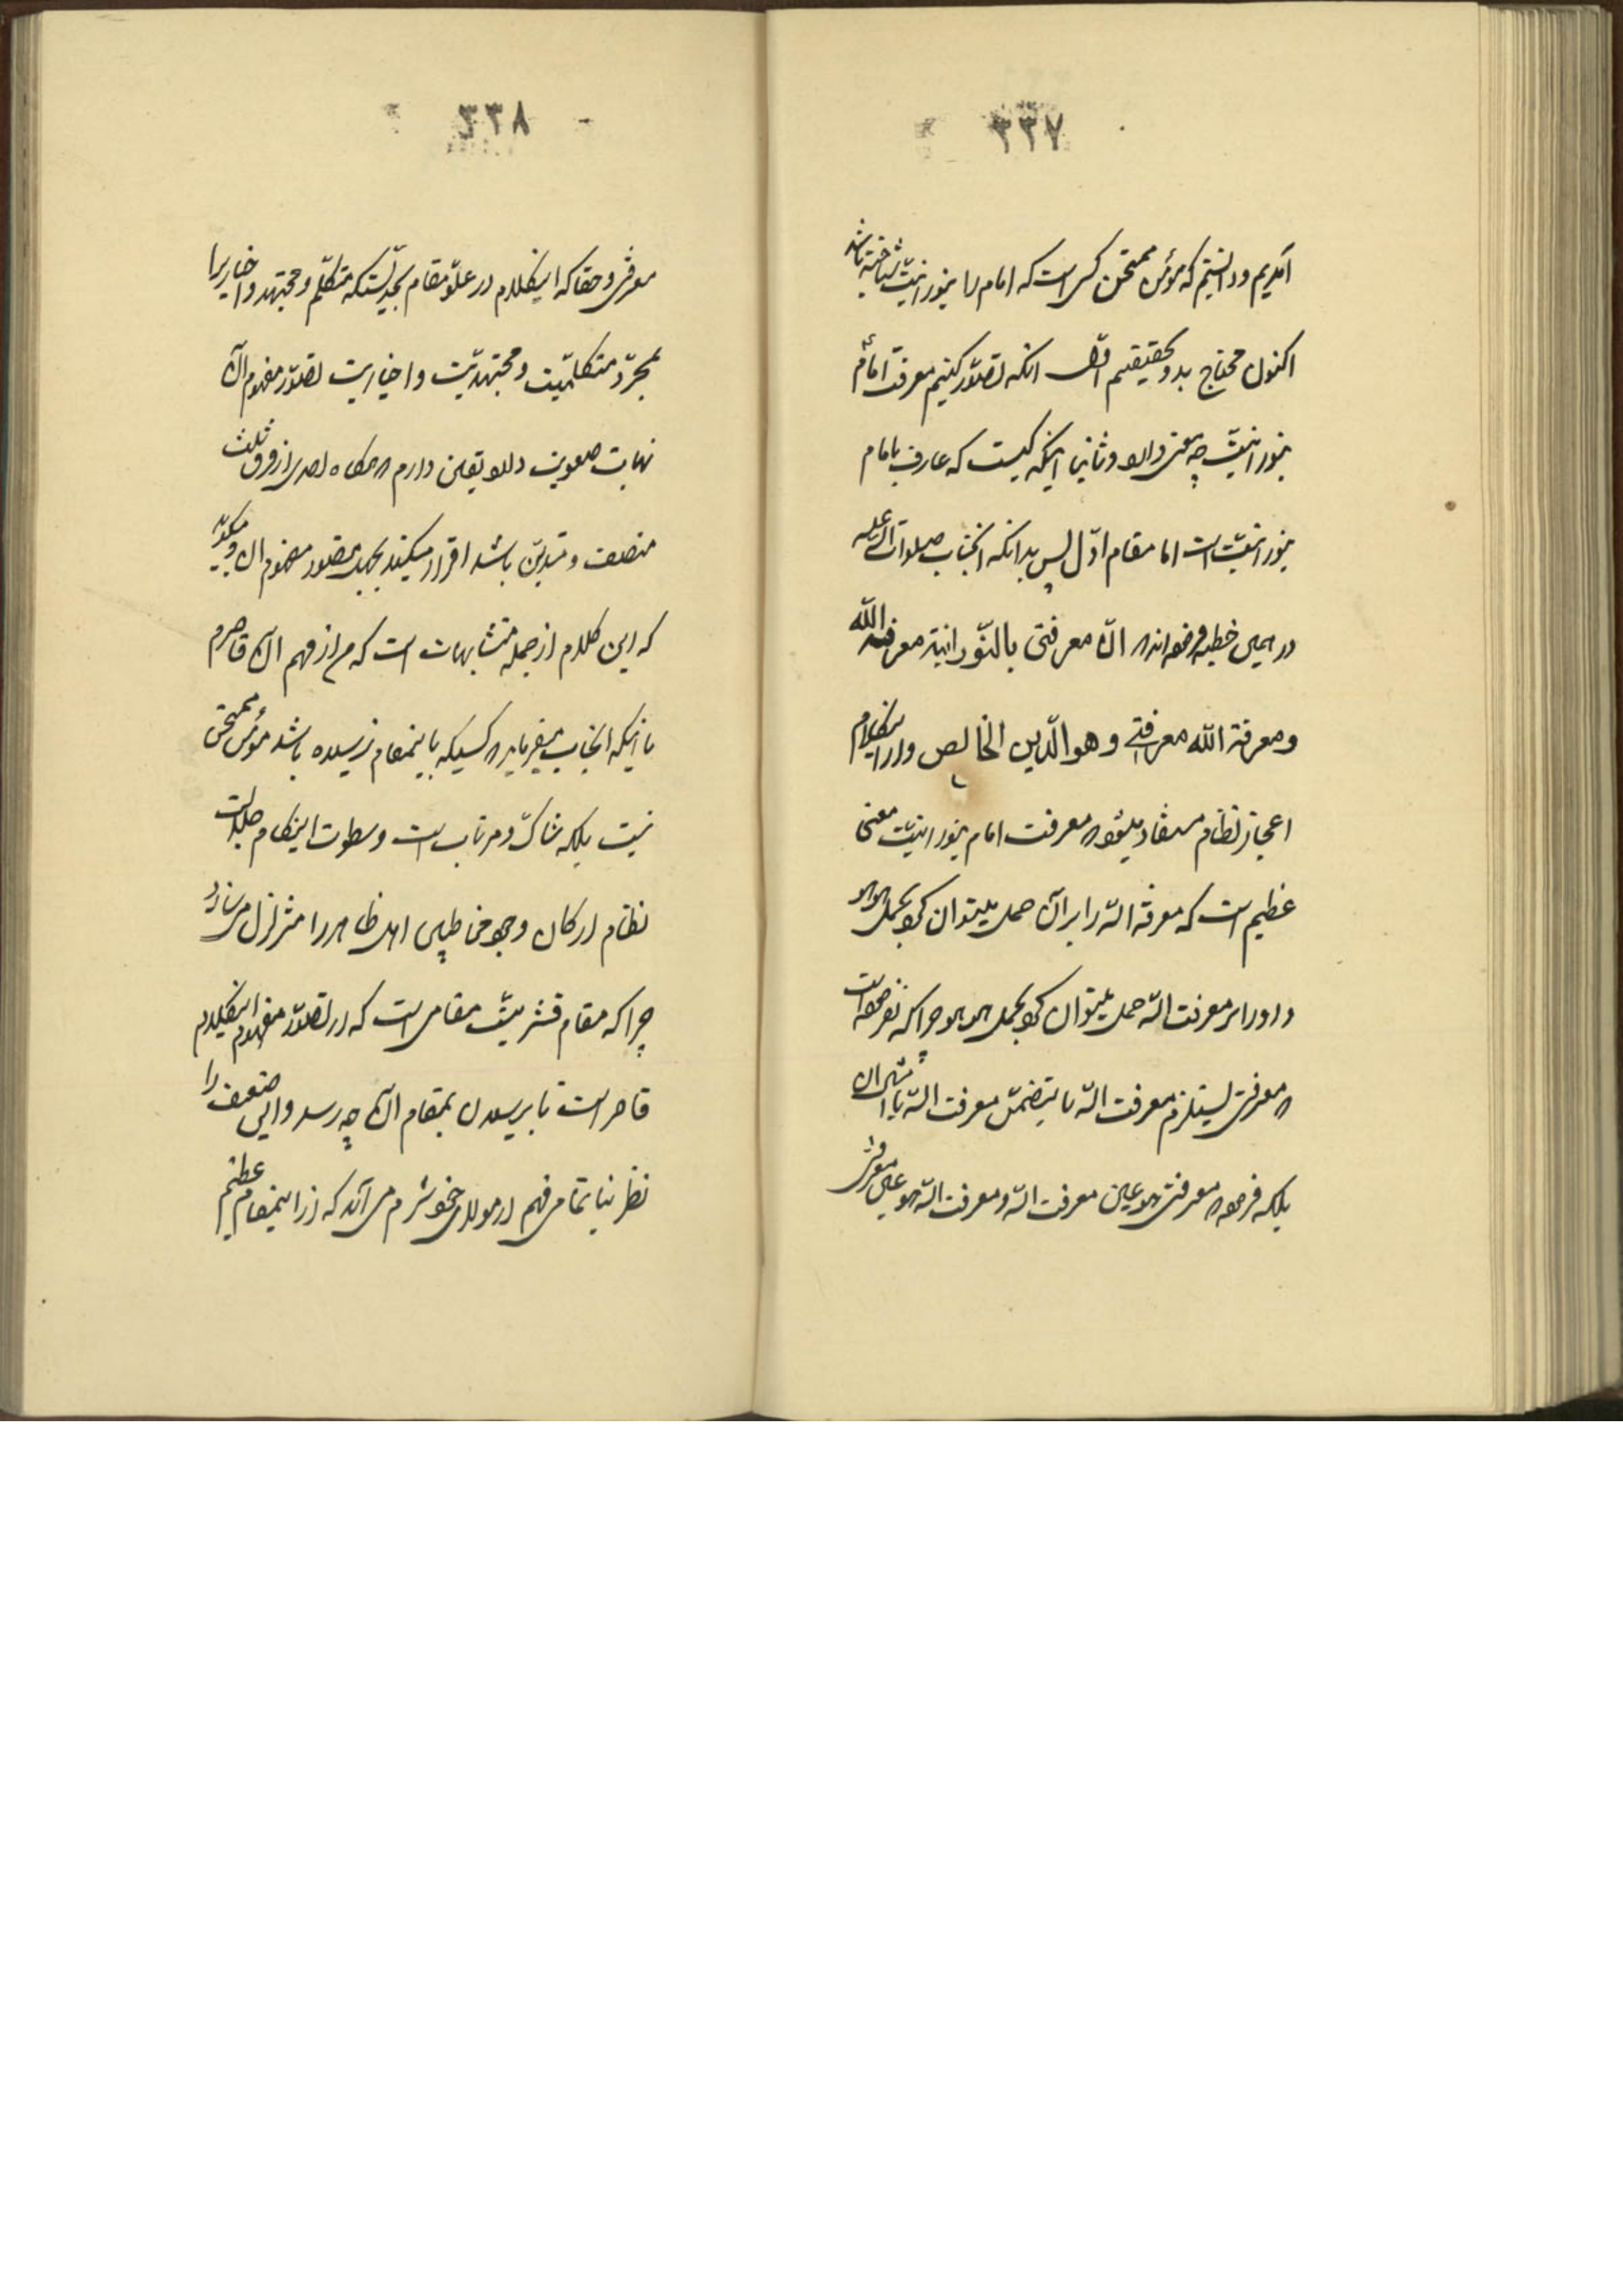 ٣٣٧
آمدیم و دانستیم که مؤمن ممتحن کسی است که امام را بنورانیّت شناخته باشد
اکنون محتاج بدو تحقیقیم اوّل انکه تصوّر کنیم معرفت امام
بنورانیّت چه معنی دارد و ثانیا اینکه کیست که عارف بامام
بنورانیّت است اما مقام اوّل پس بدانکه انجناب صلوات الله علیه
در همین خطبه فرموده‌اند که انّ معرفتی بالنّورانیة معرفة الله
ومعرفة الله معرفتی وهو الّدین الخالص و از اینکلام
اعجاز نظام مستفاد میشود که معرفت امام بنورانیّت معنی
عظیم است که معرفة الله را بر آن حمل میتوان کرد بحمل هو هو
و او را بر معرفت الله حمل میتوان کرد بحمل هو هو چرا که نفرموده است
که معرفتی یستلزم معرفت الله یا یتضمّن معرفت الله یا امثال ان
بلکه فرموده که معرفتی هو عین معرفت الله و معرفت الله هو عین معرفتی
٣٣٨
معرفتی و حقا که اینکلام در علوّ مقام بحدّیستکه متکلّم و مجتهد و اخباریرا
بمجرّد متکلّمیّت و مجتهدیّت و اخباریت تصوّر مفهوم آن
نهایت صعوبت دارد و یقین دارم که هرگاه احدی از فرق ثلث
منصف و متدیّن باشد اقرار میکند بجهل بتصور مفهوم ان و میگوید
که این کلام از جمله متشابهات است که من از فهم آن قاصرم
با اینکه انجناب میفرماید که کسیکه باینمقام نرسیده باشد مؤمن ممتحن
نیست بلکه شاکّ و مرتاب است و سطوت اینکلام جلالت
نظام ارکان وجود مخاطبین اهل ظاهر را متزلزل میسازد
چرا که مقام قشریّت مقامی است که از تصوّر مفهوم اینکلام
قاصر است تا برسیدن بمقام آن چه رسد و این ضعیف را
نظر بناتمامی فهم از مولای خود شرم می‌آید که از اینمقام عظیم